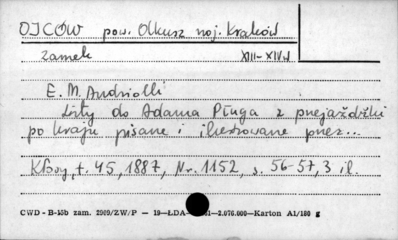 OJCÓW pow. Olkusz woj. Kraków
zamek XIII-XIV w
E. M. Andriolli
Listy do Adama Pługa z przejażdżki
po kraju pisane i ilustrowane przez...
Kłosy, t. 45, 1887, Nr. 1152, s. 56-57, 3 il.
CWD - B-15b zam. 2909/ZW/P — 19—ŁDA- -2.076.000—Karton A1/180 g